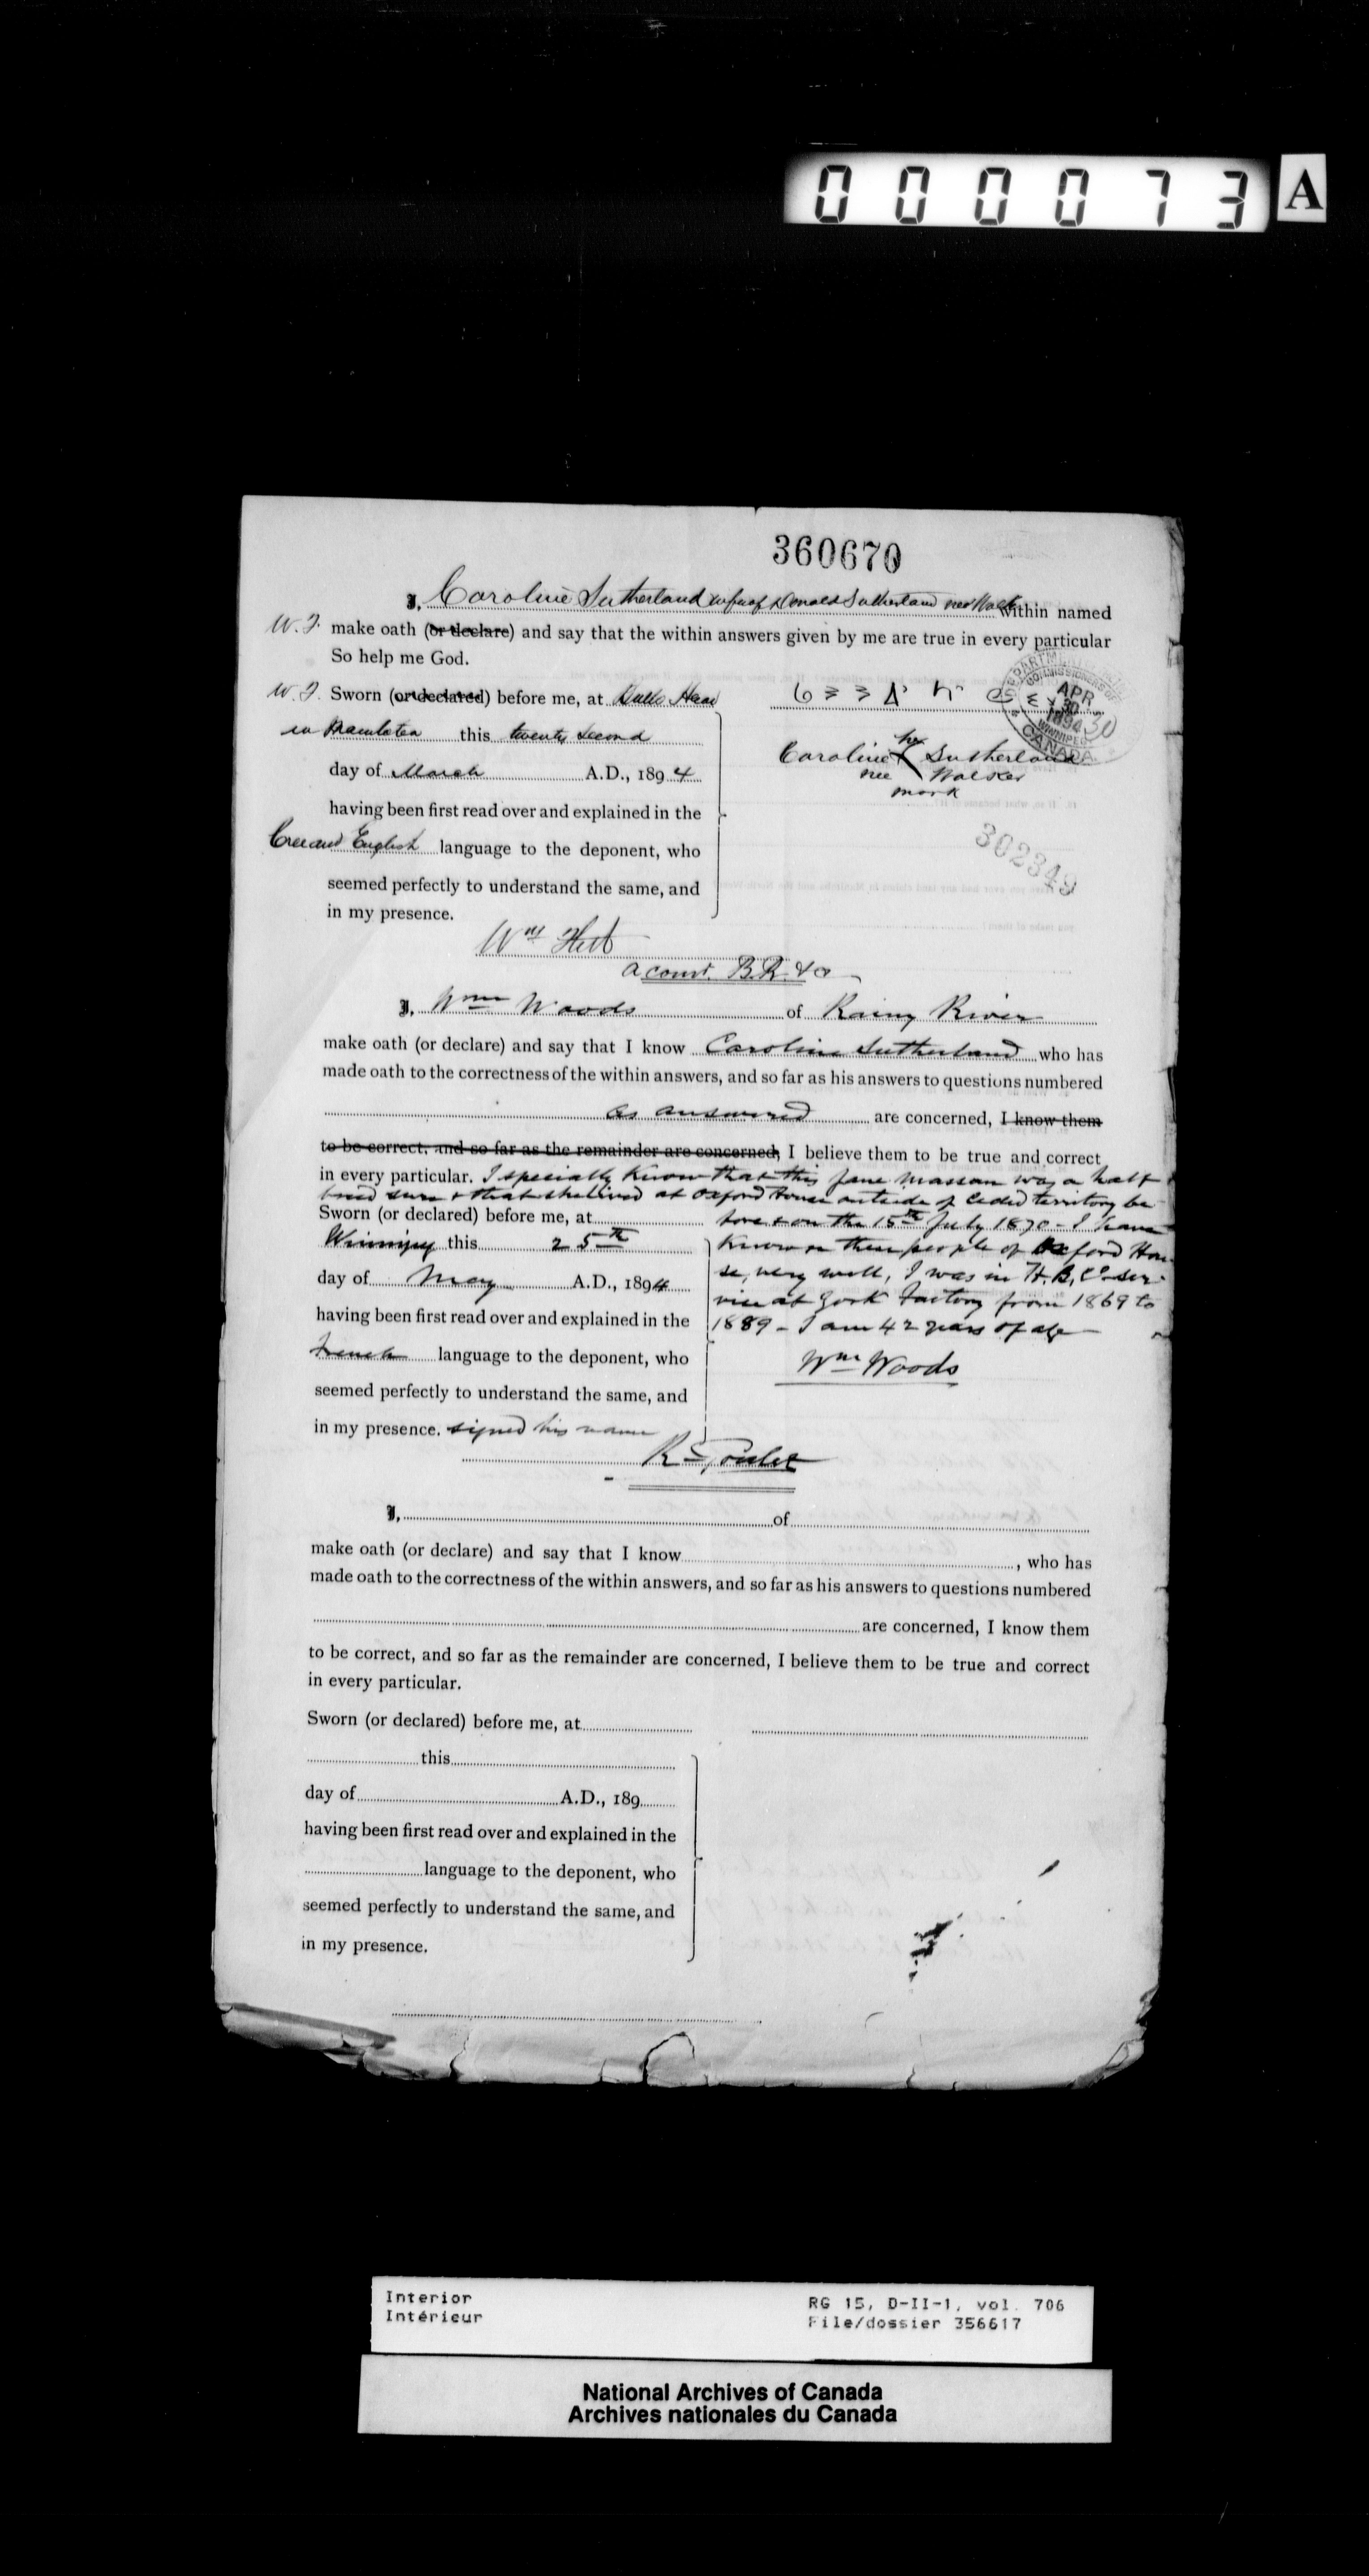 000073 A
360670
I, Caroline Sutherland wife of Donald Sutherland nee Walker within named
W. F. make oath (or declare) and say that the within answers given by me are true in every particular
So help me God.
W. F. Sworn (or declared) before me, at Bulls Head
in Manitoba this twenty second
day of March A.D., 1894
having been first read over and explained in the
Cree and English language to the deponent, who
seemed perfectly to understand the same, and
in my presence.
DEPARTMENT
COMMISSIONERS OF
APR
30
1894
WINNIPEG
CANADA
30
Caroline her X Sutherland
nee Walker
mark
302349
Wm
a comr. B.R. &c
I, Wm Woods of Rainy River
make oath (or declare) and say that I know Caroline Sutherland who has
made oath to the correctness of the within answers, and so far as his answers to questions numbered
as answered are concerned, I know them
to be correct, and so far as the remainder are concerned, I believe them to be true and correct
in every particular. I specially know that this Jane Massan was a half
breed & that she lived at Oxford House outside of ceded territory be
fore & on the 15th July 1870 - I have
known these people of Oxford Hou
se, very well, I was in H.B.Co ser-
vice at York Factory from 1869 to
1889 - I am 42 years of age
Wm Woods
Sworn (or declared) before me, at
Winnipeg this 25th
day of May A.D., 1894
having been first read over and explained in the
French language to the deponent, who
seemed perfectly to understand the same, and
in my presence. signed his name
R Goulet
I, of
make oath (or declare) and say that I know , who has
made oath to the correctness of the within answers, and so far as his answers to questions numbered
are concerned, I know them
to be correct, and so far as the remainder are concerned, I believe them to be true and correct
in every particular.
Sworn (or declared) before me, at
this
day of A.D., 189
having been first read over and explained in the
language to the deponent, who
seemed perfectly to understand the same, and
in my presence.
Interior
Intérieur
RG 15, D-II-1, vol. 706
File/dossier 356617
National Archives of Canada
Archives nationales du Canada